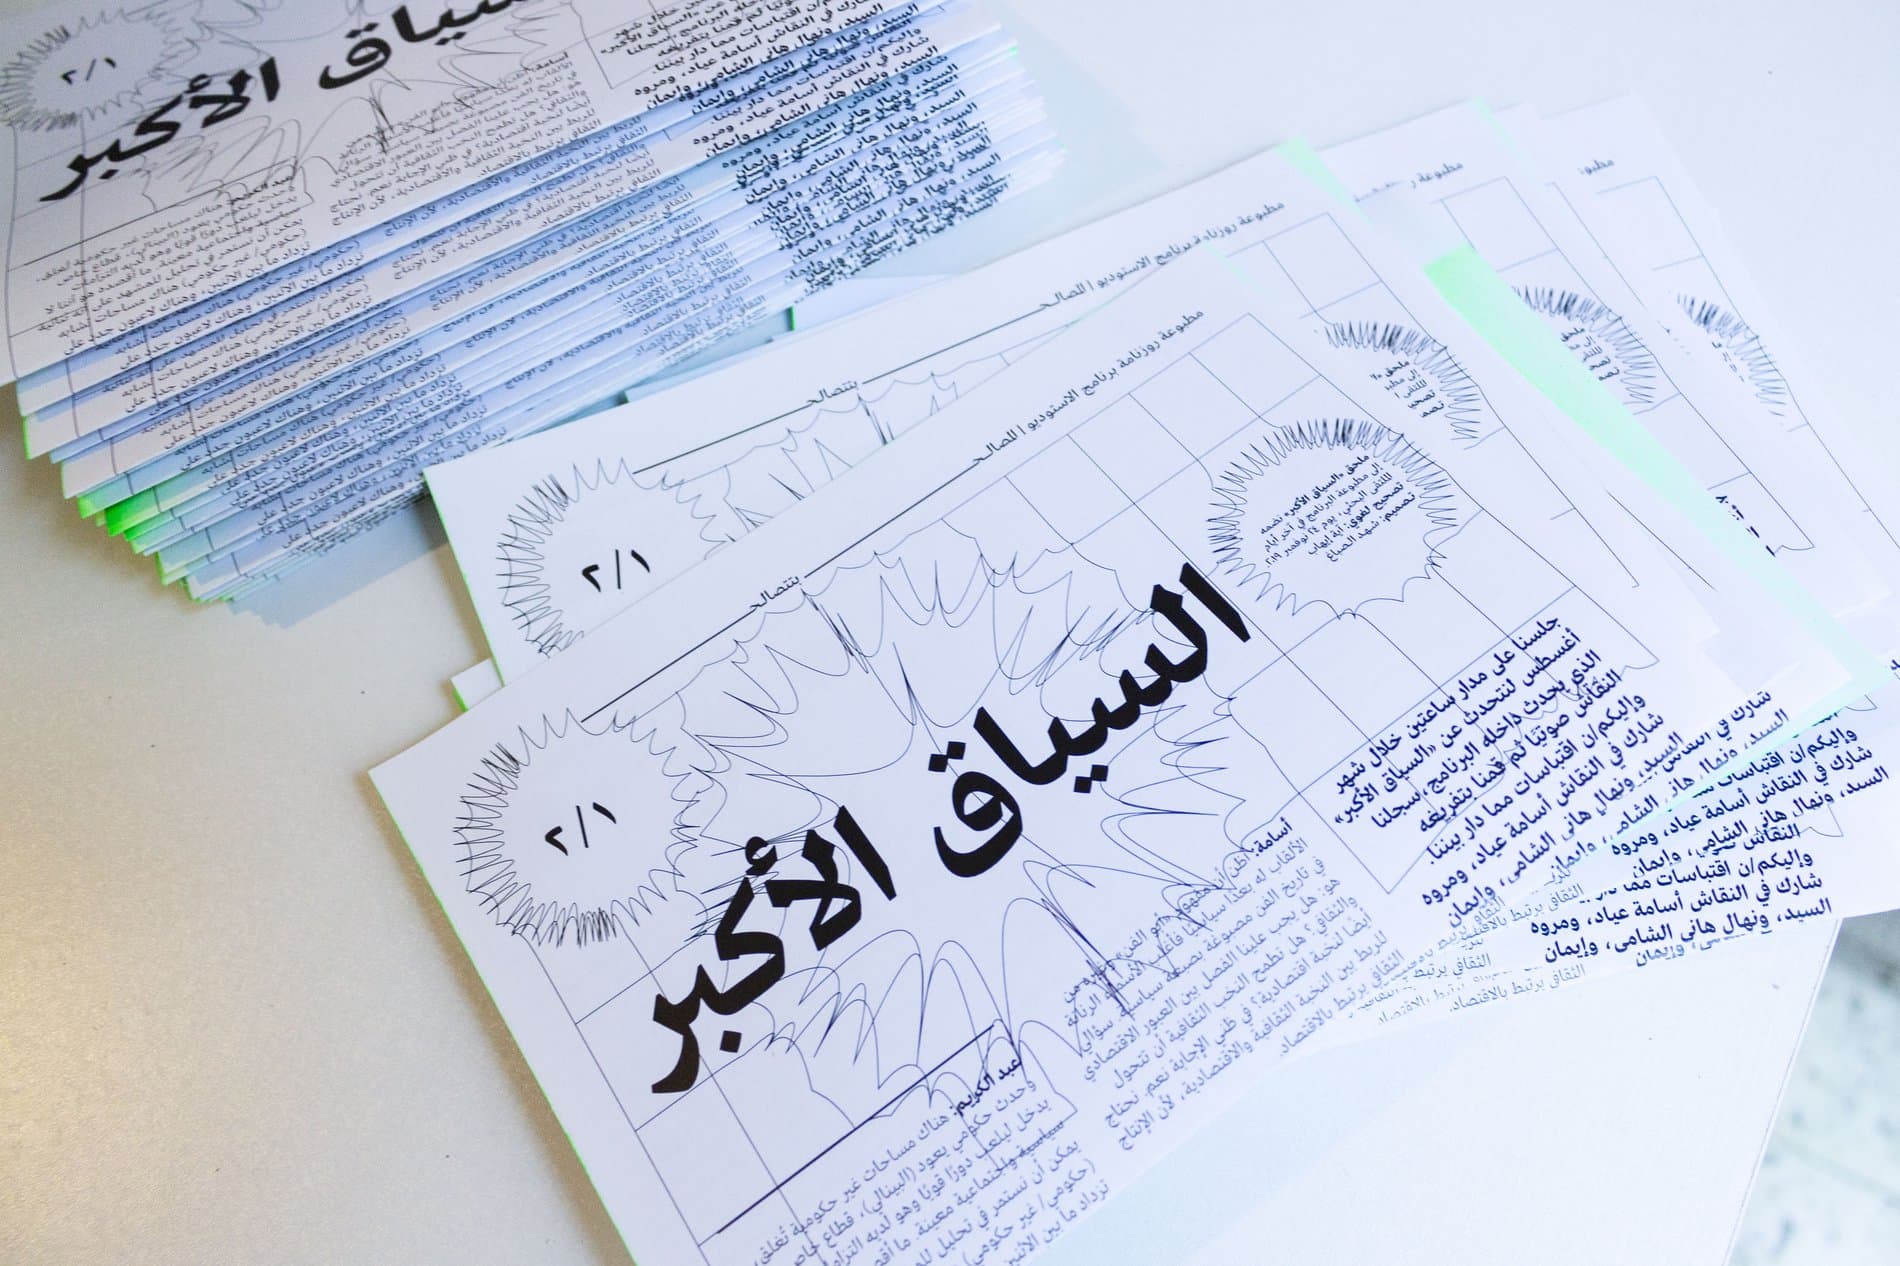 مطبوعة روزنامة برنامج الاستوديو | المصالحـ
بتتصالحـ
٢/١
السياق الأكبر
ملحق «السياق الأكبر» نضمه
إلى مطبوعة البرنامج في آخر أيام
الملتقى البحثي، يوم ٢٤ نوفمبر ٢٠١٩.
تصحيح لغوي: آية إيهاب
تصميم: شهد الصباغ
جلسنا على مدار ساعتين خلال شهر
أغسطس لنتحدث عن «السياق الأكبر»
الذي يحدث داخله البرنامج، سجلنا
النقاش صوتيًا ثم قمنا بتفريغه
وإليكم/ن اقتباسات مما دار بيننا.
شارك في النقاش أسامة عياد، ومروه
السيد، ونهال هاني الشامي، وإيمان
أسامة: أظن أن مفهوم «أبو الفن» وغيره من
الألقاب له بعدًا سياسيًا فأغلب الأسماء الرنانة
في تاريخ الفن مصبوغة بصبغة سياسية. سؤالي
هو: هل يجب علينا الفصل بين العبور الاقتصادي
والثقافي؟ هل تطمح النخب الثقافية أن تتحول
أيضًا لنخبة اقتصادية؟ في ظني الإجابة نعم. نحتاج
للربط بين النخبة الثقافية والاقتصادية، لأن الإنتاج
الثقافي يرتبط بالاقتصاد.
عبد الكريم: هناك مساحات غير حكومية تُغلق،
وحدث حكومي يعود (البينالي)، قطاع خاص
يدخل ليلعب دورًا قويًا وهو لديه التزامات
سياسية واجتماعية معينة. ما أقصده هو أننا لا
يمكن أن نستمر في تحليل للمشهد على أنه ثنائية
(حكومي/ غير حكومي) هناك مساحات تشابه
تزداد ما بين الاثنين، وهناك لاعبون جدد على